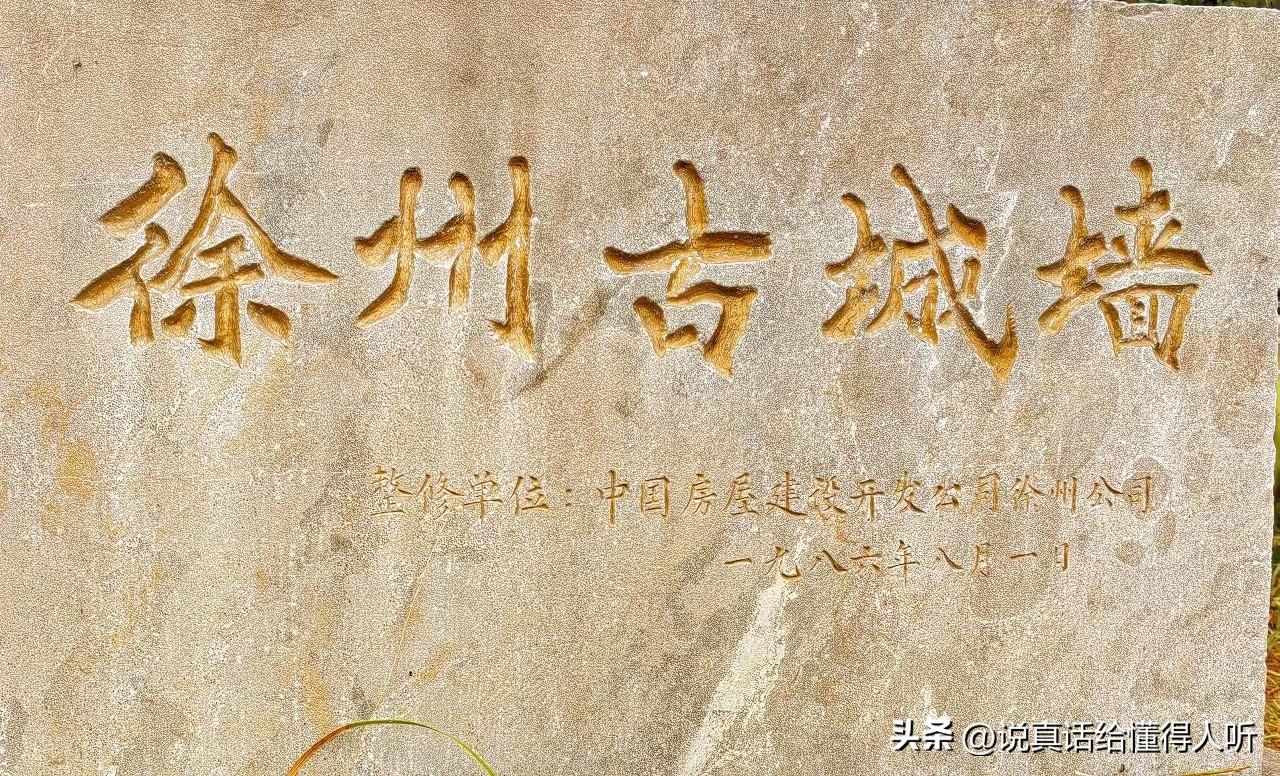 徐州古城墙
整修单位：中国房屋建设开发公司徐州公司
一九八六年八月一日
头条 @说真话给懂得人听